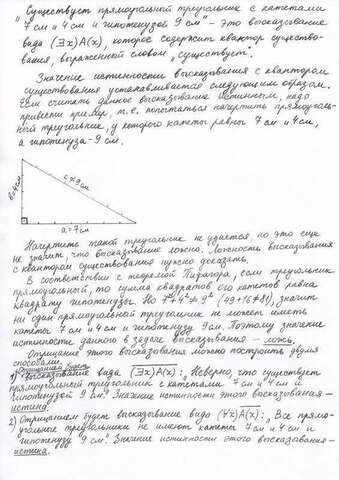 "Существует прямоугольный треугольник с катетами
7 см и 4 см и гипотенузой 9 см" - это высказывание
вида (∃x)A(x), которое содержит квантор существо-
вания, выраженный словом „существует".
Значение истинности высказывания с квантором
существования устанавливается следующим образом.
Если считать данное высказывание истинным, надо
привести пример, т.е. попытаться начертить прямоуголь-
ный треугольник, у которого катеты равны 7 см и 4 см,
а гипотенуза - 9 см.
в=4см
c≠9см
a=7см
Начертить такой треугольник не удается, но это еще
не значит, что высказывание ложно. Ложность высказывания
с квантором существования нужно доказать.
В соответствии с теоремой Пифагора, если треугольник
прямоугольный, то сумма квадратов его катетов равна
квадрату гипотенузы. Но 7²+4²≠9² (49+16≠81), значит
ни один прямоугольный треугольник не может иметь
катеты 7 см и 4 см и гипотенузу 9 см. Поэтому значение
истинности данного в задаче высказывания - ложь.
Отрицание этого высказывания можно построить двумя
способами.
Отрицанием будет
1) высказывание вида (∃x)A(x): „Неверно, что существует
прямоугольный треугольник с катетами 7 см и 4 см и
гипотенузой 9 см." Значение истинности этого высказывания -
истина.
2) Отрицанием будет высказывание вида (∀x)A̅(̅x̅)̅: „Все прямо-
угольные треугольники не имеют катеты 7 см и 4 см и
гипотенузу 9 см." Значение истинности этого высказывания -
истина.